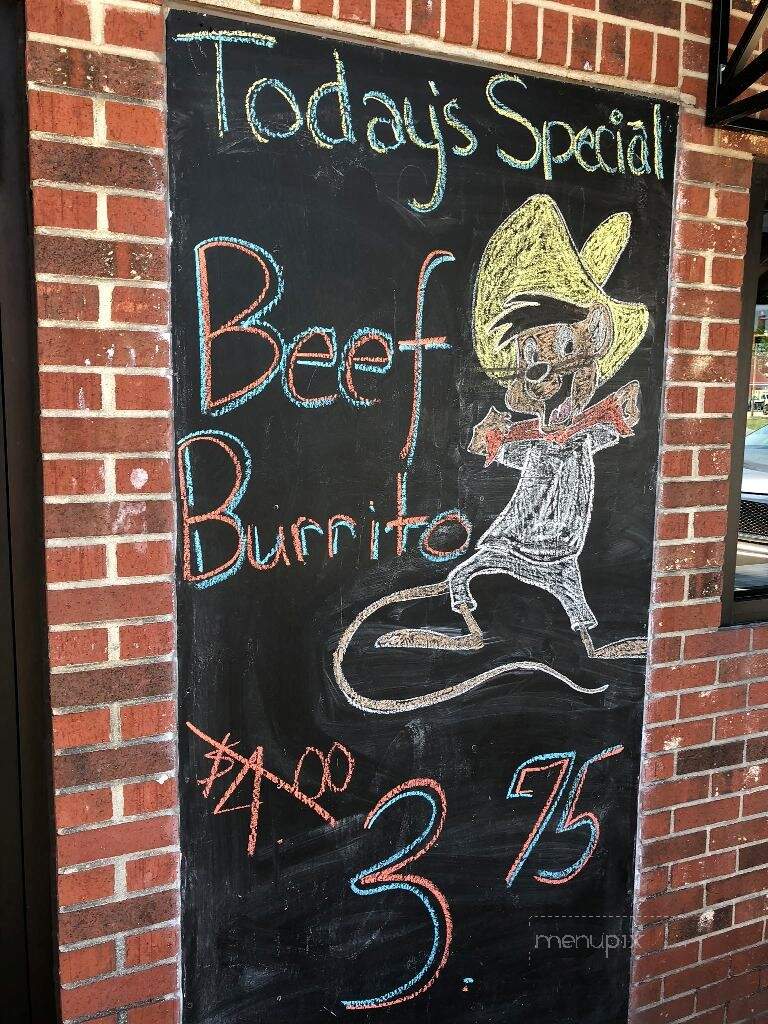 Today's Special
Beef
Burrito
$4.00
3.75
menupix